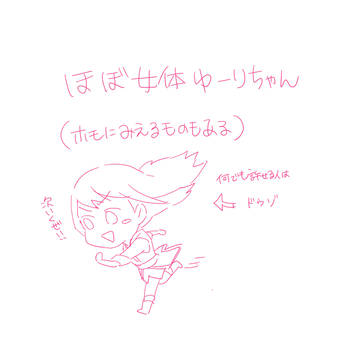 ほぼ女体ゆーりちゃん
(ホモにみえるものもある)
何でも許せる人は
ドウゾ
次いくぜ!!